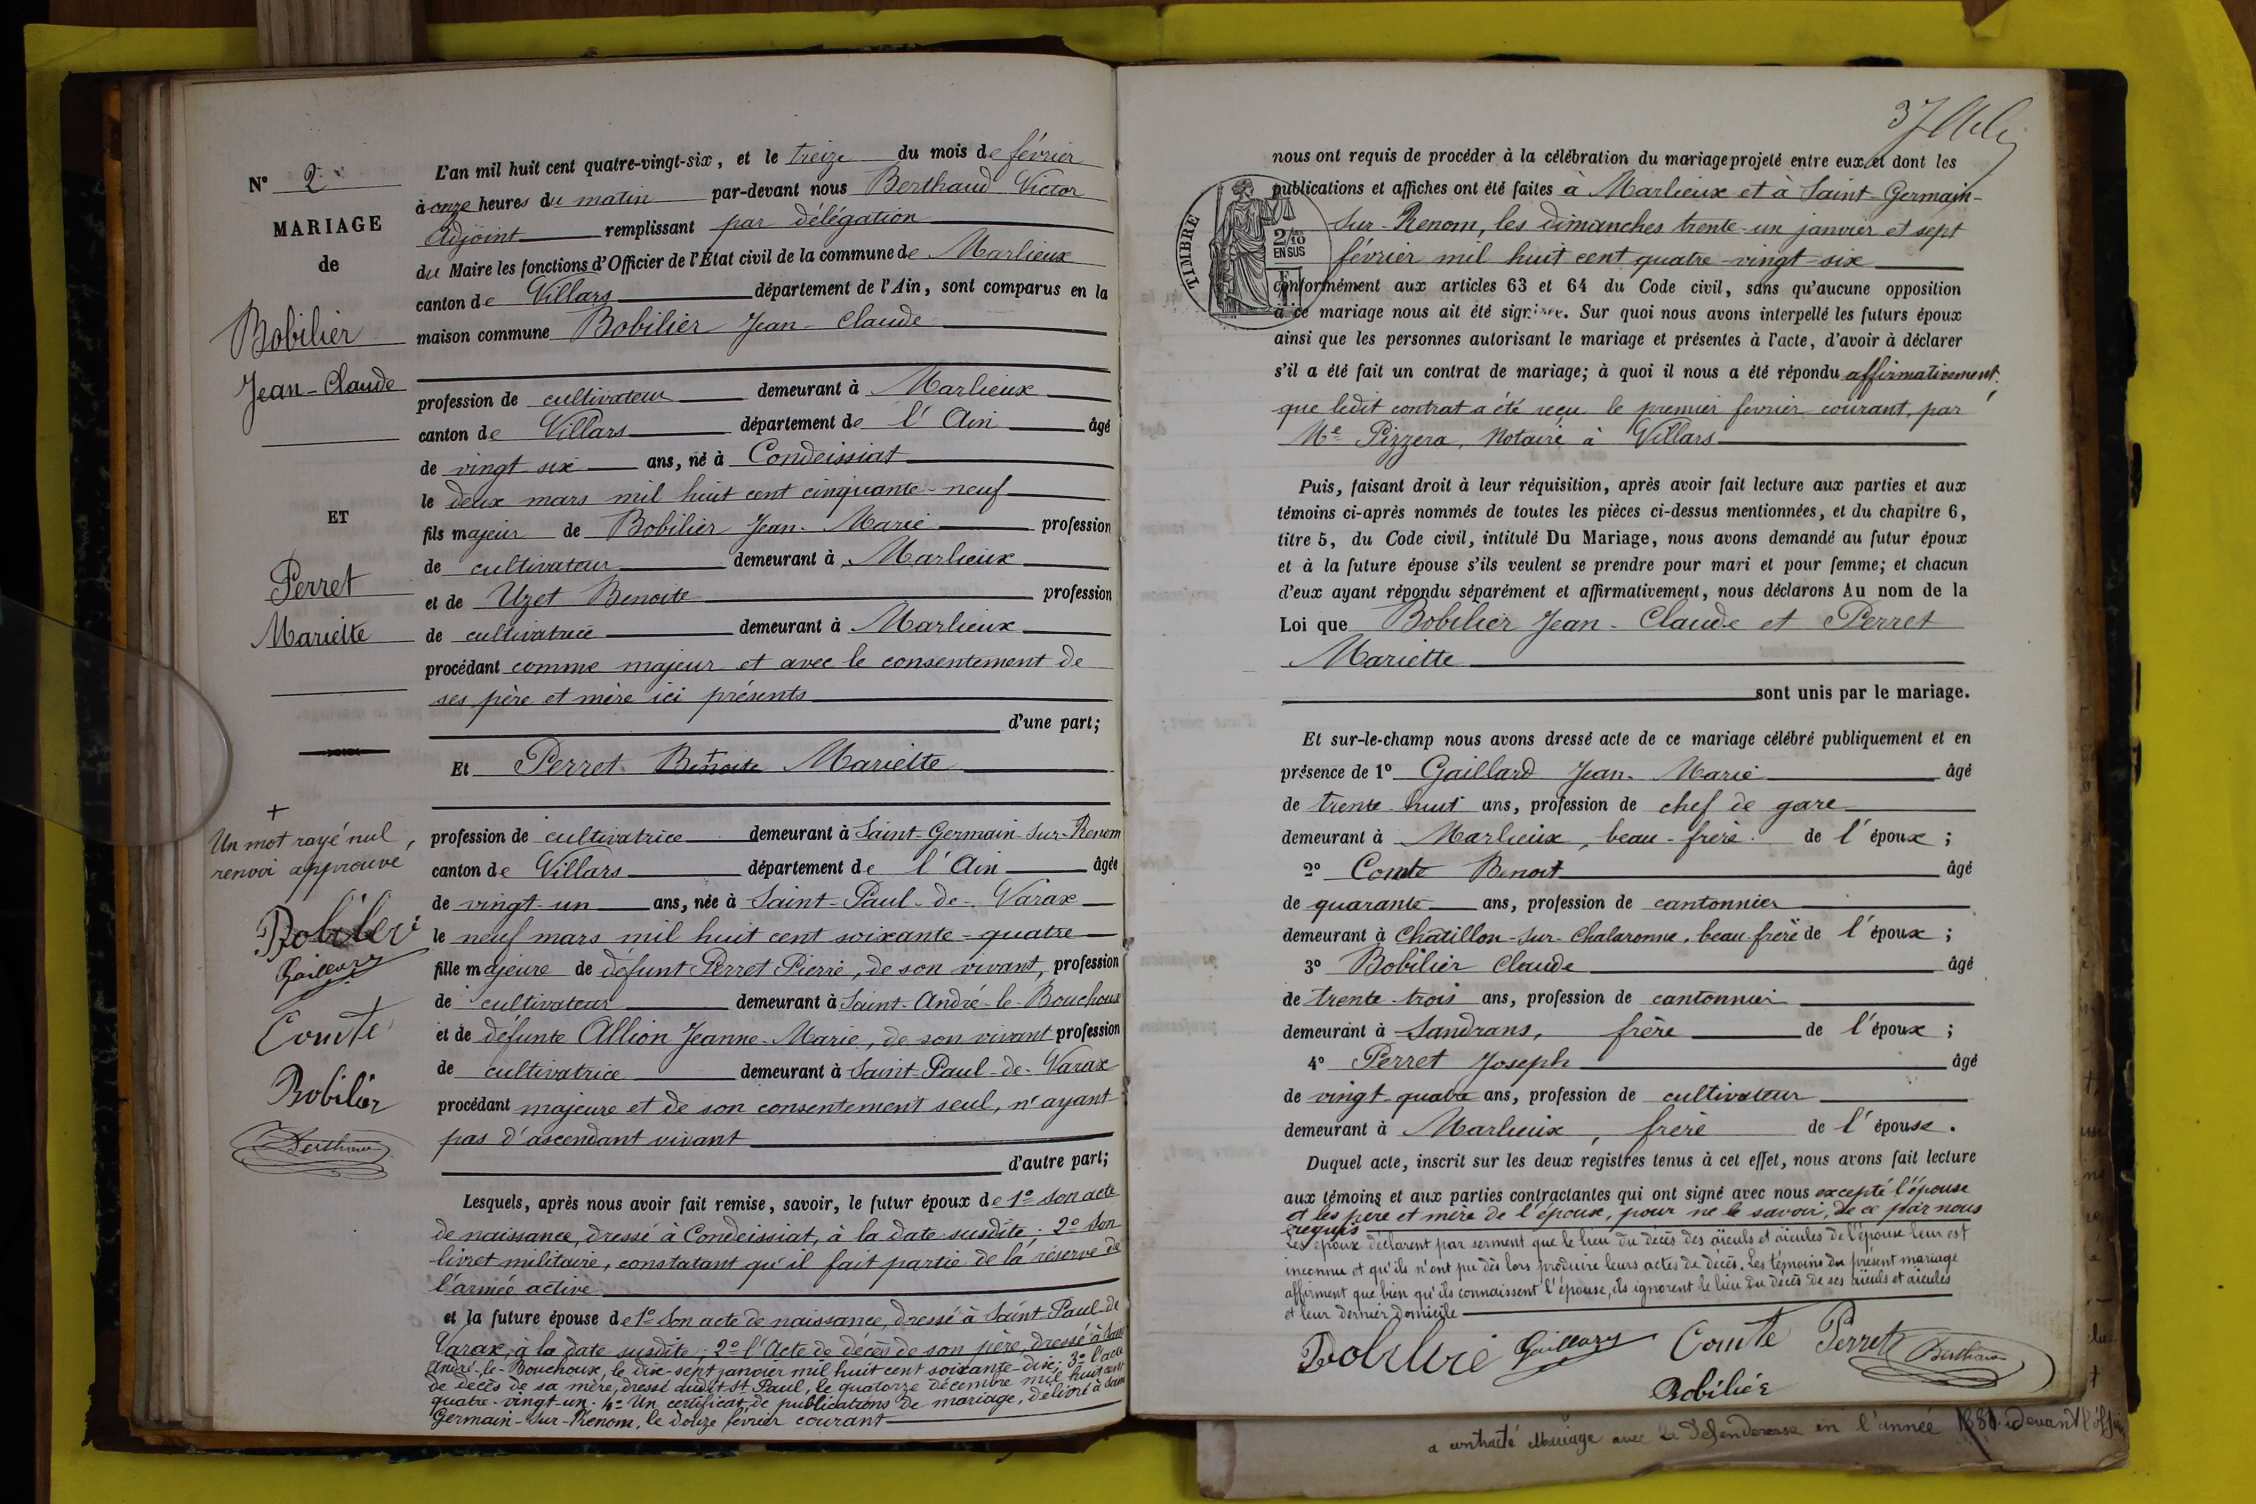 N° 2
MARIAGE
de
Bobilier
Jean-Claude
ET
Perret
Mariette
+
Un mot rayé nul,
renvoi approuvé
Gaillard
Comte
Bobilier
Berthaud
L'an mil huit cent quatre-vingt-six, et le treize du mois de février
à onze heures du matin par-devant nous Berthaud Victor
Adjoint remplissant par délégation
du Maire les fonctions d'Officier de l'État civil de la commune de Marlieux
canton de Villars département de l'Ain, sont comparus en la
maison commune Bobilier Jean-Claude
profession de cultivateur demeurant à Marlieux
canton de Villars département de l'Ain âgé
de vingt six ans, né à Condeissiat
le deux mars mil huit cent cinquante-neuf
fils majeur de Bobilier Jean-Marie profession
de cultivateur demeurant à Marlieux
et de Uzet Benoite profession
de cultivatrice demeurant à Marlieux
procédant comme majeur et avec le consentement de
ses père et mère ici présents
d'une part;
Et Perret Benoite Mariette
profession de cultivatrice demeurant à Saint-Germain-sur-Renom
canton de Villars département de l'Ain âgée
de vingt-un ans, née à Saint-Paul-de-Varax
le neuf mars mil huit cent soixante-quatre
fille majeure de défunt Perret Pierre, de son vivant, profession
de cultivateur demeurant à Saint-André-le-Bouchoux
et de défunte Allion Jeanne-Marie, de son vivant profession
de cultivatrice demeurant à Saint-Paul-de-Varax
procédant majeure et de son consentement seul, n'ayant
pas d'ascendant vivant
d'autre part;
Lesquels, après nous avoir fait remise, savoir, le futur époux de 1° son acte
de naissance, dressé à Condeissiat, à la date susdite; 2° son
livret militaire, constatant qu'il fait partie de la réserve de
l'armée active
et la future épouse de 1° son acte de naissance, dressé à Saint-Paul-de
Varax, à la date susdite; 2° l'Acte de décès de son père, dressé à Saint
André-le-Bouchoux, le dix-sept janvier mil huit cent soixante-dix; 3° l'acte
de décès de sa mère, dressé audit St Paul, le quatorze décembre mil huit cent
quatre-vingt-un. 4° Un certificat de publications de mariage, délivré à Saint
Germain-sur-Renom, le douze février courant
37
TIMBRE
2/10
EN SUS
nous ont requis de procéder à la célébration du mariage projeté entre eux et dont les
publications et affiches ont été faites à Marlieux et à Saint-Germain-
sur-Renom, les dimanches trente-un janvier et sept
février mil huit cent quatre-vingt-six
conformément aux articles 63 et 64 du Code civil, sans qu'aucune opposition
à ce mariage nous ait été signifiée. Sur quoi nous avons interpellé les futurs époux
ainsi que les personnes autorisant le mariage et présentes à l'acte, d'avoir à déclarer
s'il a été fait un contrat de mariage; à quoi il nous a été répondu affirmativement,
que ledit contrat a été reçu le premier février courant, par
Me Pizzera, Notaire à Villars
Puis, faisant droit à leur réquisition, après avoir fait lecture aux parties et aux
témoins ci-après nommés de toutes les pièces ci-dessus mentionnées, et du chapitre 6,
titre 5, du Code civil, intitulé Du Mariage, nous avons demandé au futur époux
et à la future épouse s'ils veulent se prendre pour mari et pour femme; et chacun
d'eux ayant répondu séparément et affirmativement, nous déclarons Au nom de la
Loi que Bobilier Jean-Claude et Perret
Mariette
sont unis par le mariage.
Et sur-le-champ nous avons dressé acte de ce mariage célébré publiquement et en
présence de 1° Gaillard Jean-Marie âgé
de trente huit ans, profession de chef de gare
demeurant à Marlieux, beau-frère de l'époux;
2° Comte Benoit âgé
de quarante ans, profession de cantonnier
demeurant à Châtillon-sur-Chalaronne, beau-frère de l'époux;
3° Bobilier Claude âgé
de trente-trois ans, profession de cantonnier
demeurant à Sandrans, frère de l'époux;
4° Perret Joseph âgé
de vingt-quatre ans, profession de cultivateur
demeurant à Marlieux, frère de l'épouse.
Duquel acte, inscrit sur les deux registres tenus à cet effet, nous avons fait lecture
aux témoins et aux parties contractantes qui ont signé avec nous excepté l'épouse
et les père et mère de l'époux, pour ne le savoir, de ce par nous
requis
Les époux déclarent par serment que le lieu du décès des aïeuls et aïeules de l'épouse leur est
inconnu et qu'ils n'ont pu dès lors produire leurs actes de décès. Les témoins du présent mariage
affirment que bien qu'ils connaissent l'épouse, ils ignorent le lieu du décès de ses aïeuls et aïeules
et leur dernier domicile
Gaillard Comte Perret Berthaud
Bobilier
a contracté Mariage avec la Défenderesse en l'année devant l'off